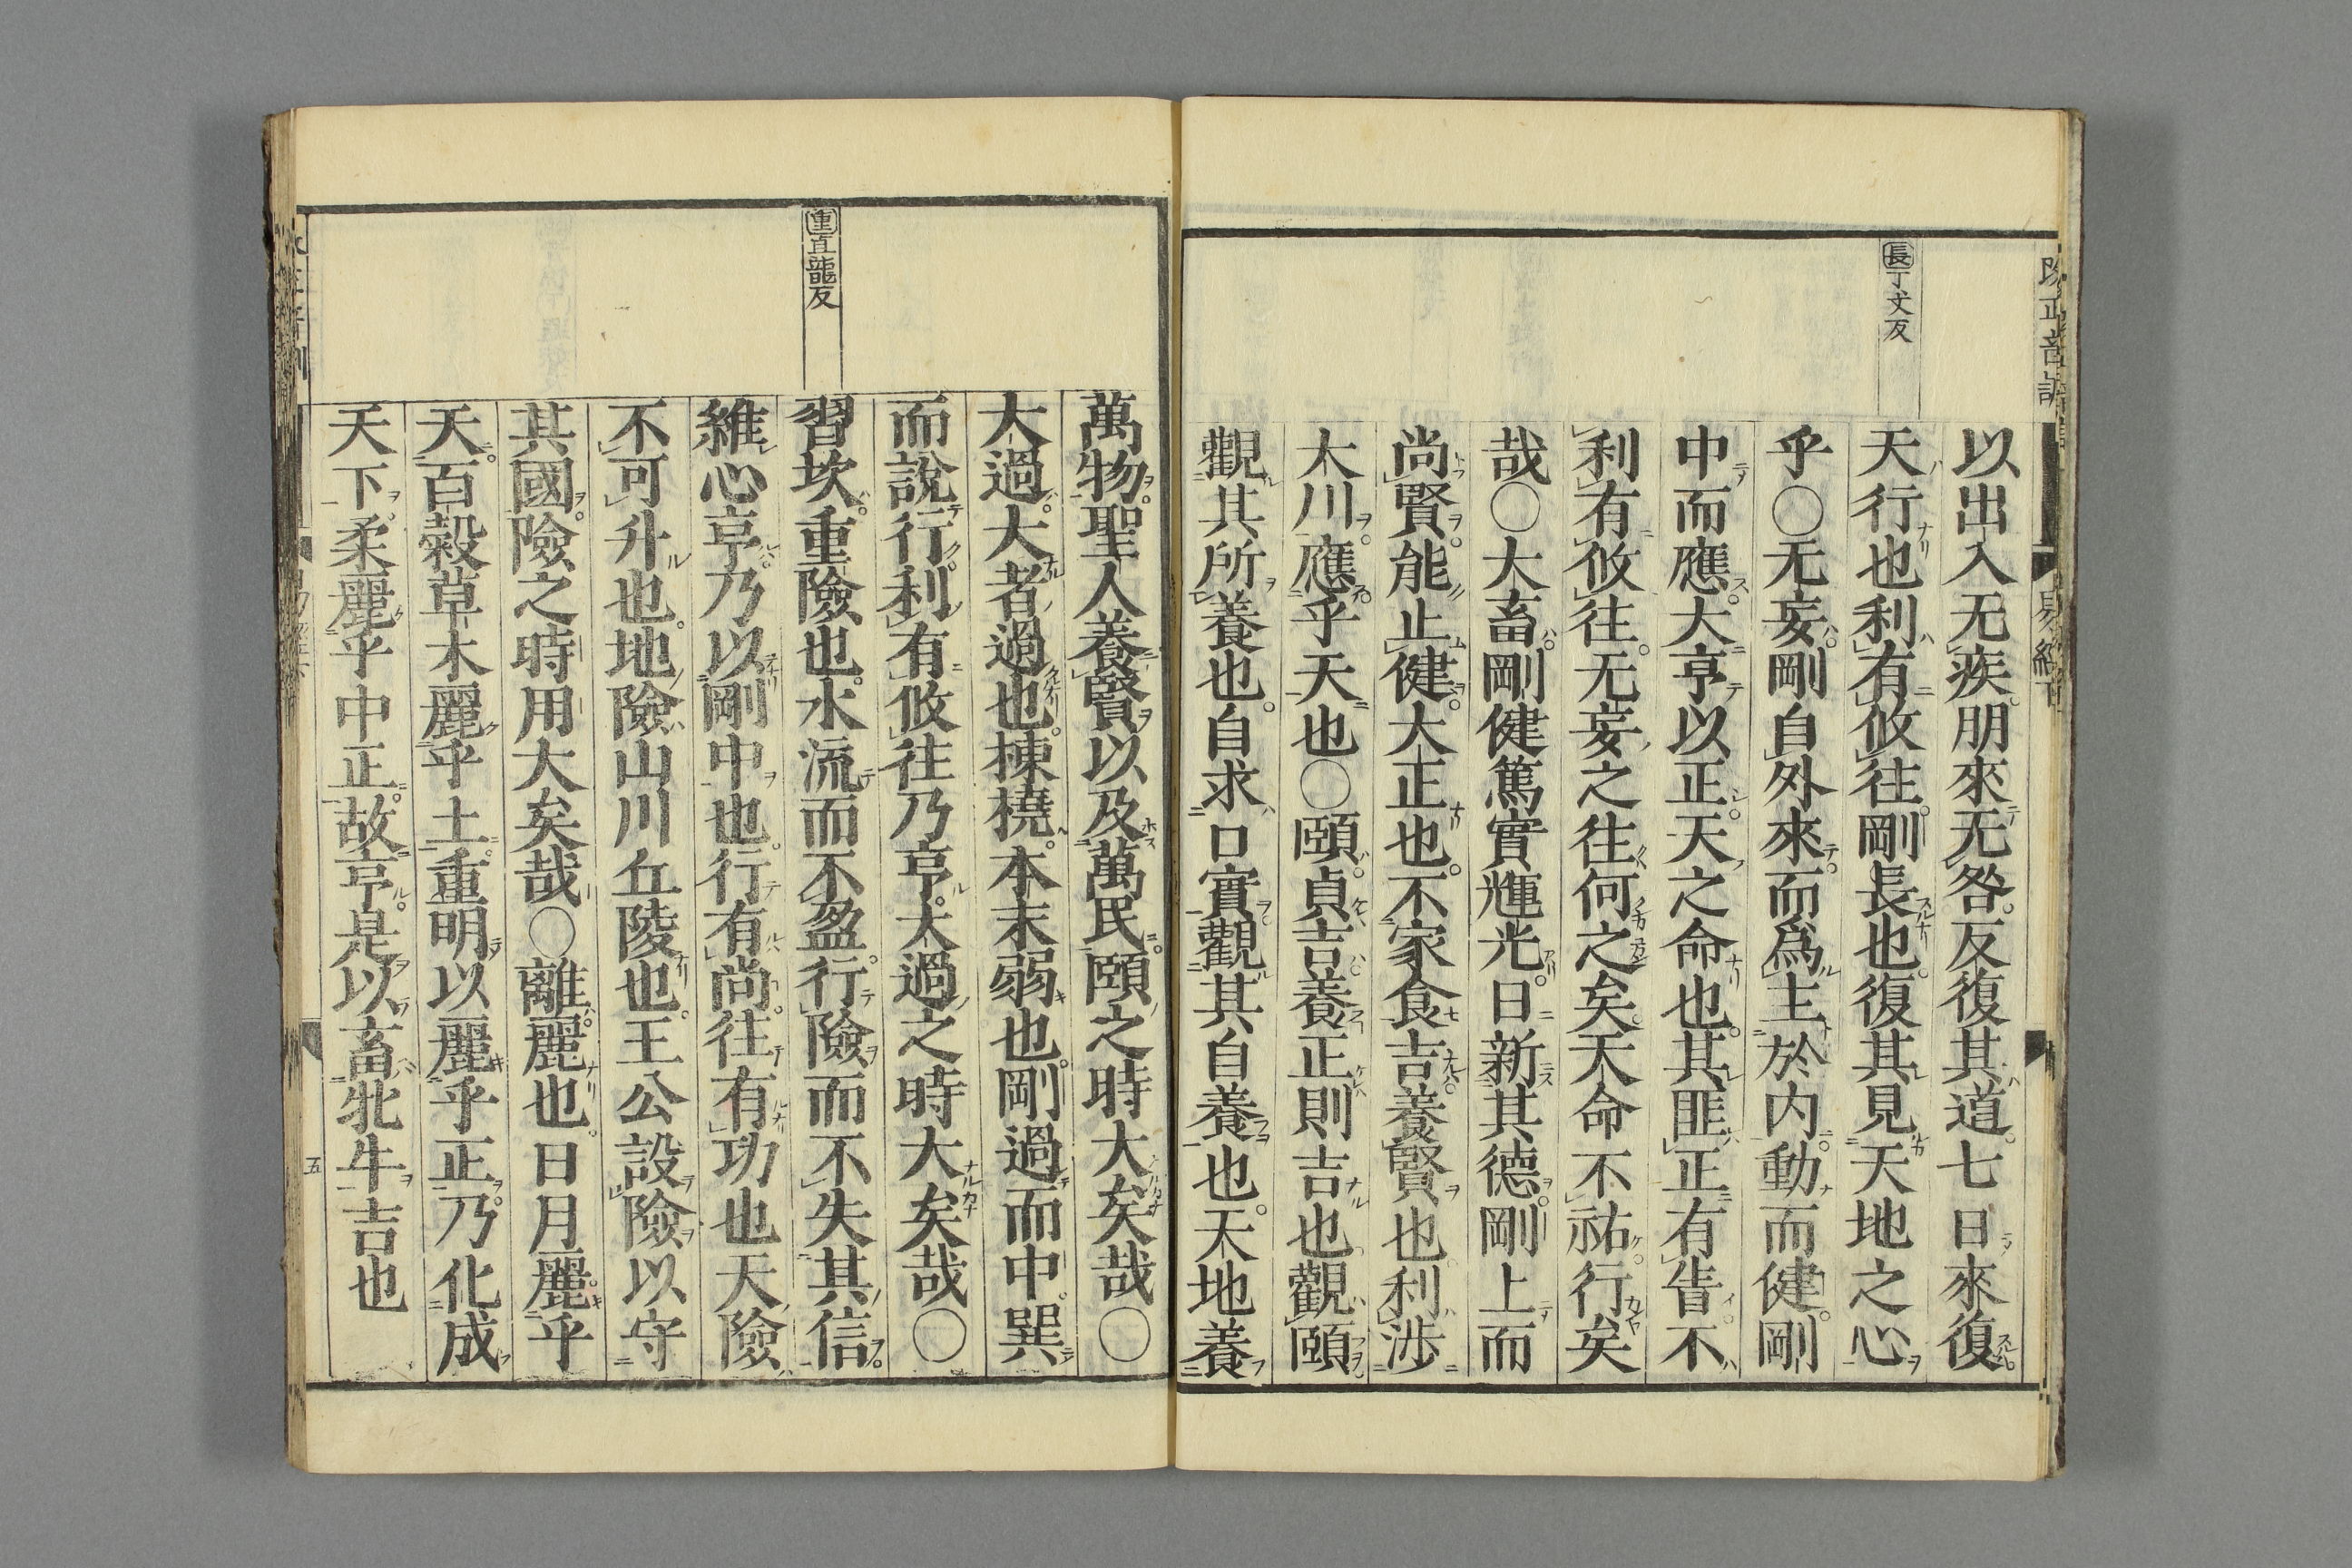 長丁丈反
以出入无疾朋來无咎反復其道七日來復
天行也利有攸往剛長也復其見天地之心
乎○无妄剛自外來而爲主於内動而健剛
中而應大亨以正天之命也其匪正有眚不
利有攸往无妄之往何之矣天命不祐行矣
哉○大畜剛健篤實輝光日新其德剛上而
尚賢能止健大正也不家食吉養賢也利涉
大川應乎天也○頤貞吉養正則吉也觀頤
觀其所養也自求口實觀其自養也天地養
重直龍反
萬物聖人養賢以及萬民頤之時大矣哉○
大過大者過也棟橈本末弱也剛過而中巽
而說行利有攸往乃亨大過之時大矣哉○
習坎重險也水流而不盈行險而不失其信
維心亨乃以剛中也行有尚往有功也天險
不可升也地險山川丘陵也王公設險以守
其國險之時用大矣哉○離麗也日月麗乎
天百穀草木麗乎土重明以麗乎正乃化成
天下柔麗乎中正故亨是以畜牝牛吉也
五